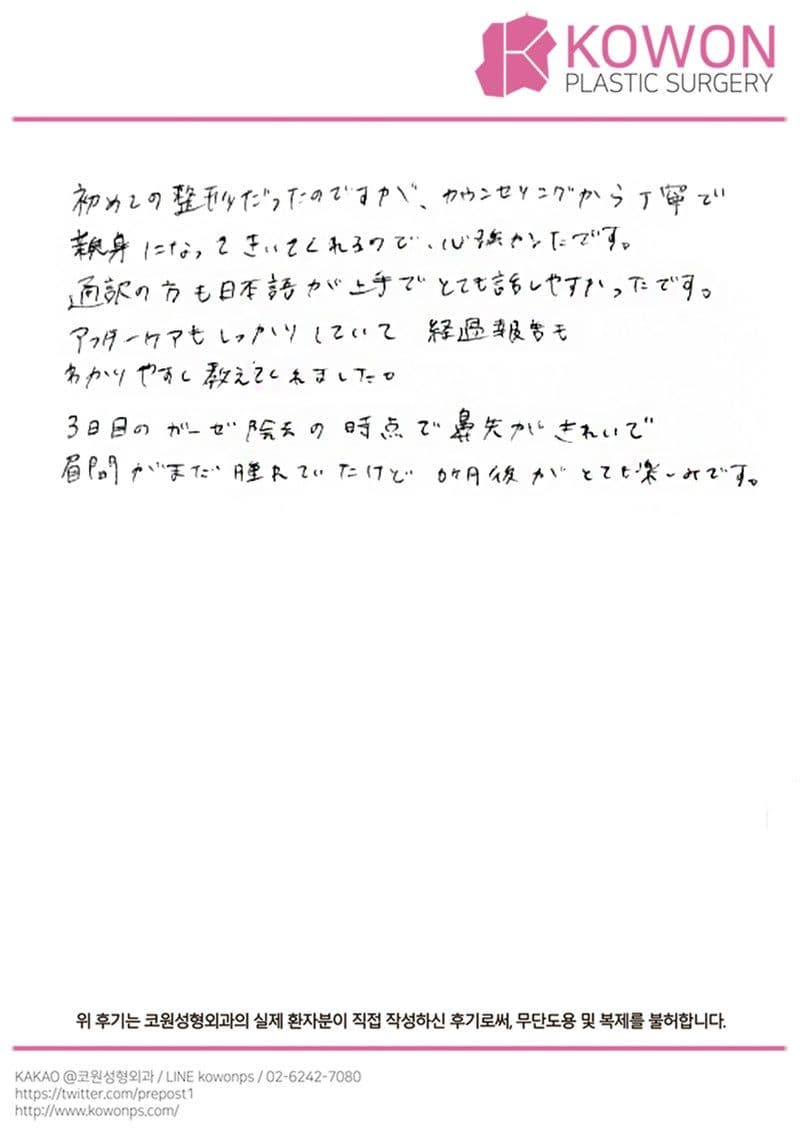 KOWON
PLASTIC SURGERY
初めての整形だったのですが、カウンセリングから丁寧で
親身になってきいてくれるので、心強かったです。
通訳の方も日本語が上手でとても話しやすかったです。
アフターケアもしっかりしていて 経過報告も
わかりやすく教えてくれました。
3日目のガーゼ除去の時点で鼻先がきれいで
眉間がまだ腫れていたけど 月後がとても楽しみです。
위 후기는 코원성형외과의 실제 환자분이 직접 작성하신 후기로써, 무단도용 및 복제를 불허합니다.
KAKAO @코원성형외과 / LINE kowonps / 02-6242-7080
https://twitter.com/prepost1
http://www.kowonps.com/